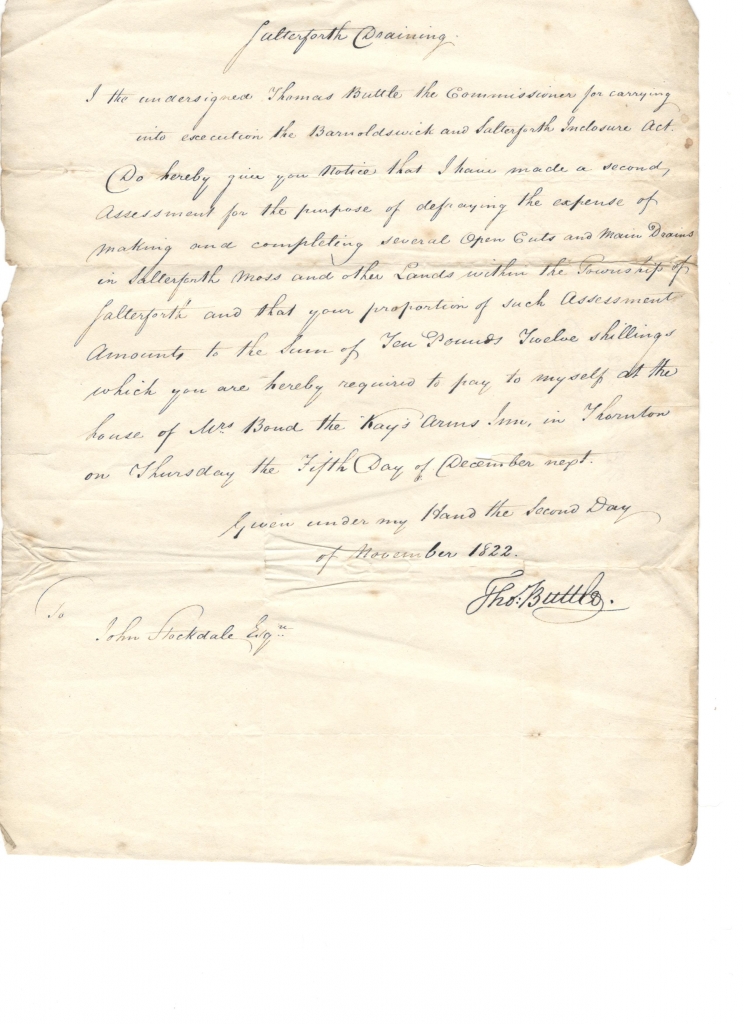 Salterforth Draining.
I the undersigned Thomas Buttle the Commissioner for carrying
into execution the Barnoldswick and Salterforth Inclosure Act.
Do hereby give you Notice that I have made a second
Assessment for the purpose of defraying the expense of
making and completing several Open Cuts and Main Drains
in Salterforth Moss and other Lands within the Township of
Salterforth and that your proportion of such Assessment
Amounts to the Sum of Ten Pounds Twelve shillings
which you are hereby required to pay to myself at the
house of Mrs Bond the Kay's Arms Inn, in Thornton
on Thursday the Fifth Day of December next.
Given under my Hand the Second Day
of November 1822.
Tho: Buttle.
To
John Stockdale Esqre